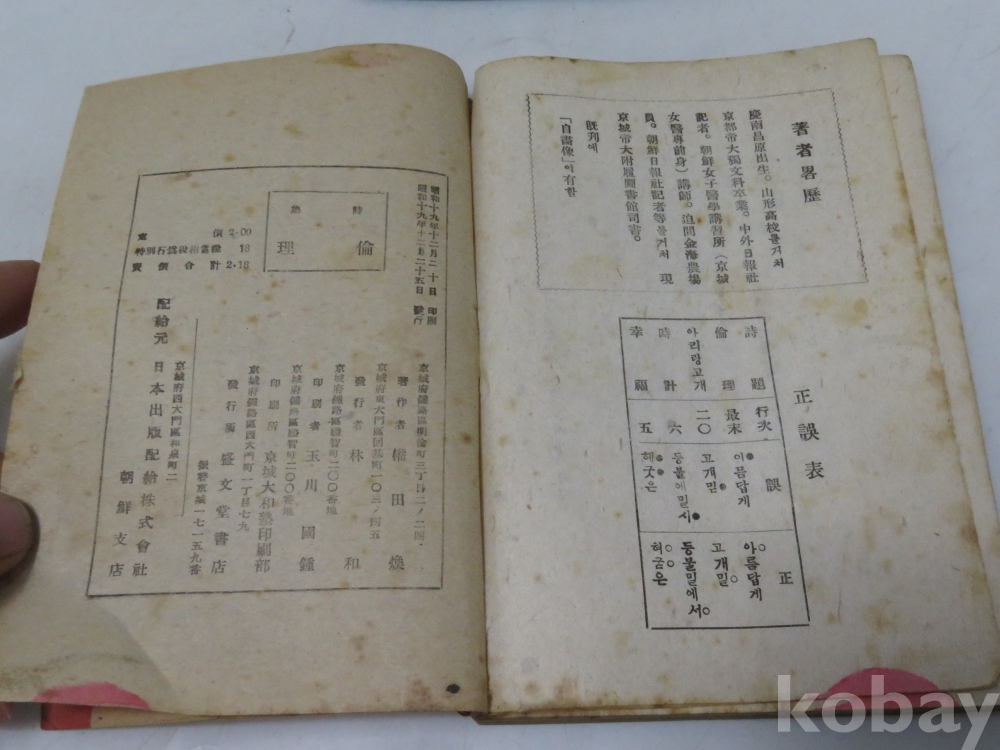 著者畧歷
慶南昌原出生。山形高校를거처
京都帝大獨文科卒業。中外日報社
記者。朝鮮女子醫學講習所(京城
女醫專前身)講師。進間金海農場
員。朝鮮日報社記者等을거처 現
京城帝大附屬圖書館司書。
既刊에
「自畵像」이有함
正誤表
詩題 行次 誤 正
倫理 最末 이름답게 아름답게
아리랑고개 二〇 고개밀 고개밑
時計 六 등불에밀서 등불밑에서
幸福 五 헤굿은 허굼은
昭和十九年十二月二十日 印刷
昭和十九年十二月二十五日 發行
詩集
倫理
價 2.00
18
賣價合計 2.18
京城府鍾路區明倫町三丁目二ノ二四
著作者 權田煥
發行者 林和
京城府鍾路區
印刷者 玉川國鍾
京城府鍾路區
印刷所 京城大和塾印刷部
京城府鍾路區西大門町一丁目七九
發行所 盛文堂書店
振替京城一七一五九番
京城府西大門區和泉町二
配給元 日本出版配給株式會社
朝鮮支店
kobay